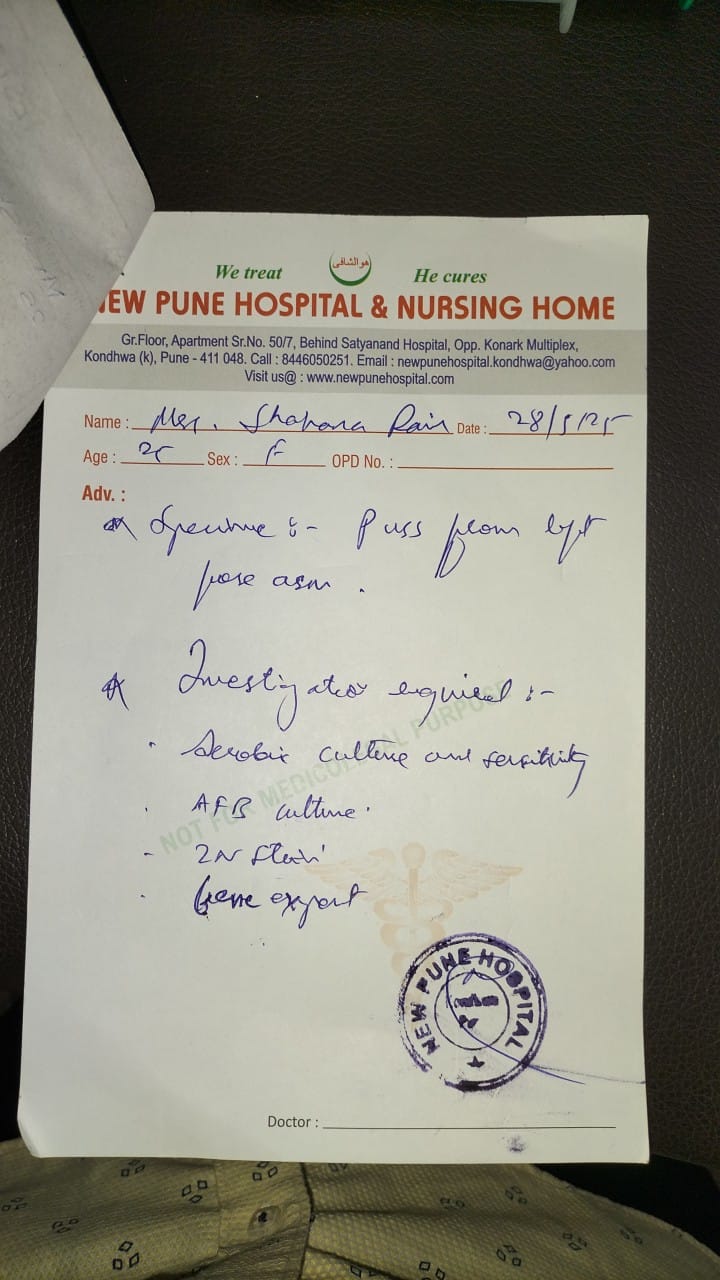 We treat هوالشافی He cures
NEW PUNE HOSPITAL & NURSING HOME
Gr.Floor, Apartment Sr.No. 50/7, Behind Satyanand Hospital, Opp. Konark Multiplex,
Kondhwa (k), Pune - 411 048. Call : 8446050251. Email : newpunehospital.kondhwa@yahoo.com
Visit us@ : www.newpunehospital.com
Name : Shabana Date : 28/5/25
Age : 25 Sex : F OPD No. :
Adv. :
Specimen :- Puss from left
fore arm .
Investigation required :-
· Aerobic culture and sensitivity
· AFB culture.
- ZN Stain
· Gene expert
NOT FOR MEDICOLEGAL PURPOSE
NEW PUNE HOSPITAL
Doctor :